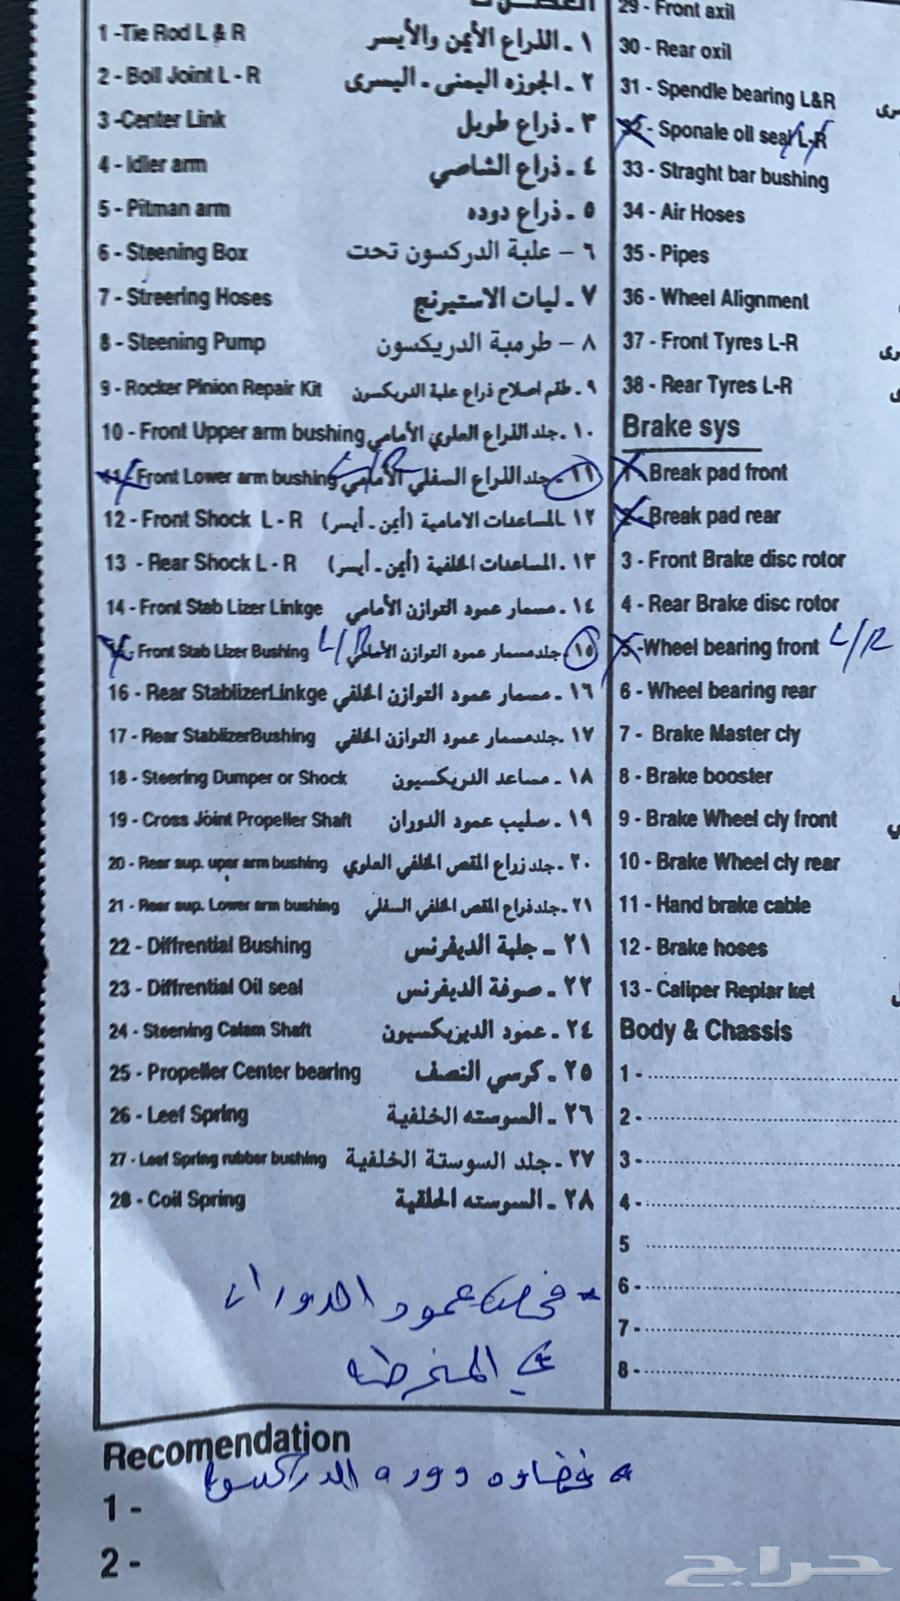 1 -Tie Rod L & R ١ ـ الذراع الأيمن والأيسر
2 - Boll Joint L - R ٢ ـ الجوزه اليمنى ـ اليسرى
3 -Center Link ٣ ـ ذراع طويل
4 - Idler arm ٤ ـ ذراع الشاصي
5 - Pitman arm ٥ ـ ذراع دوده
6 - Steening Box ٦ – علبة الدركسون تحت
7 - Streering Hoses ٧ ـ ليات الاستيرنج
8 - Steening Pump ٨ – طرمبة الدريكسون
9 - Rocker Pinion Repair Kit ٩ ـ طقم اصلاح ذراع علبة الدريكسون
10 - Front Upper arm bushing ١٠ ـ جلد الذراع العلوي الأمامي
11 - Front Lower arm bushing L/R ١١ ـ جلد الذراع السفلي الأمامي
12 - Front Shock L - R ١٢ ـ المساعدات الامامية (أيمن ـ أيسر)
13 - Rear Shock L - R ١٣ ـ المساعدات الخلفية (أيمن ـ أيسر)
14 - Front Stab Lizer Linkge ١٤ ـ مسمار عمود التوازن الأمامي
Front Stab Lizer Bushing L/R ١٥ ـ جلد مسمار عمود التوازن الأمامي
16 - Rear StablizerLinkge ١٦ ـ مسمار عمود التوازن الخلفي
17 - Rear StablizerBushing ١٧ ـ جلد مسمار عمود التوازن الخلفي
18 - Steering Dumper or Shock ١٨ ـ مساعد الدريكسيون
19 - Cross Joint Propeller Shaft ١٩ ـ صليب عمود الدوران
20 - Rear sup. uper arm bushing ٢٠ ـ جلد زراع المقص الخلفي العلوي
21 - Rear sup. Lower arm bushing ٢١ ـ جلد فراع المقص الخلفي السفلي
22 - Diffrential Bushing ٢١ ـ جلبة الديفرنس
23 - Diffrential Oil seal ٢٢ ـ صوفة الديفرنس
24 - Steening Calam Shaft ٢٤ ـ عمود الديزيكسيون
25 - Propeller Center bearing ٢٥ ـ كرسي النصف
26 - Leef Spring ٢٦ ـ السوسته الخلفية
27 - Leef Spring rubber bushing ٢٧ ـ جلد السوستة الخلفية
28 - Coil Spring ٢٨ ـ السوسته الخلقية
عمود الدوران
في المخرطه
29 - Front axil
30 - Rear oxil
31 - Spendle bearing L&R
32 - Sponale oll seal L-R
33 - Straght bar bushing
34 - Air Hoses
35 - Pipes
36 - Wheel Alignment
37 - Front Tyres L-R
38 - Rear Tyres L-R
Brake sys
1 - Break pad front
2 - Break pad rear
3 - Front Brake disc rotor
4 - Rear Brake disc rotor
5 -Wheel bearing front L/R
6 - Wheel bearing rear
7 - Brake Master cly
8 - Brake booster
9 - Brake Wheel cly front
10 - Brake Wheel cly rear
11 - Hand brake cable
12 - Brake hoses
13 - Caliper Repiar ket
Body & Chassis
1 -
2 -
3 -
4 -
5
6 -
7 -
8 -
Recomendation
الدركسون
1 -
2 -
حراج